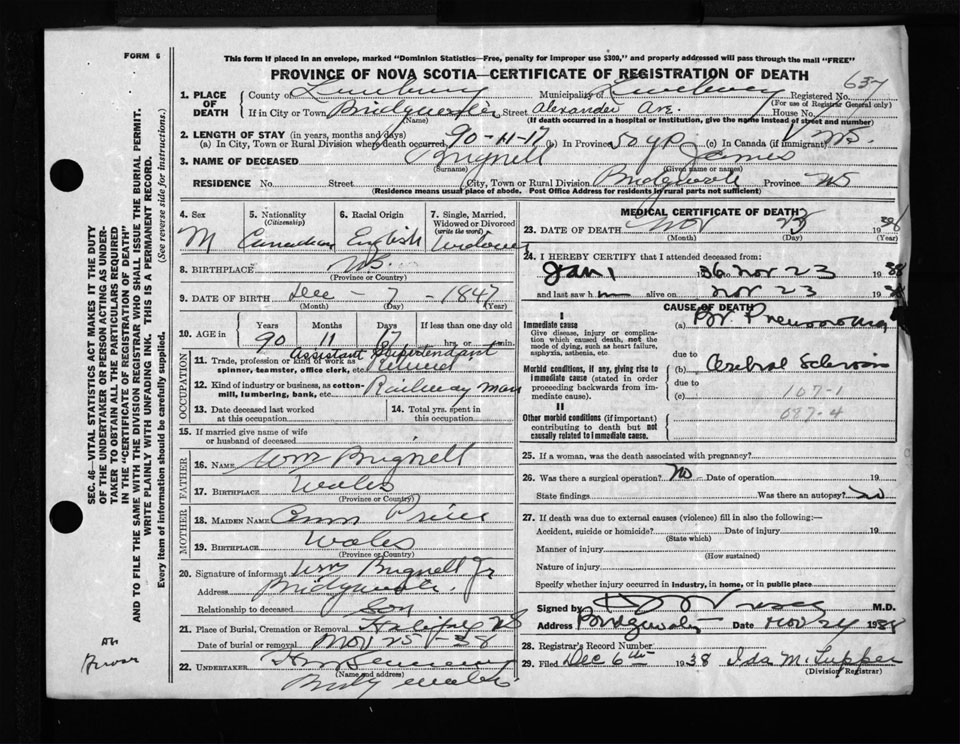 FORM 6
This form if placed in an envelope, marked "Dominion Statistics—Free, penalty for improper use $300," and properly addressed will pass through the mail "FREE"
PROVINCE OF NOVA SCOTIA—CERTIFICATE OF REGISTRATION OF DEATH
637
1. PLACE OF DEATH
County of Lunenburg Municipality of Lunenburg Registered No.
(For use of Registrar General only)
If in City or Town Bridgewater Street Alexander Ave. House No.
(Name) (If death occurred in a hospital or institution, give the name instead of street and number)
2. LENGTH OF STAY (in years, months and days)
(a) In City, Town or Rural Division where death occurred 90-11-17 (b) In Province 50 yrs (c) In Canada (if immigrant) NS.
3. NAME OF DECEASED Brignell James
(Surname) (Given name or names)
RESIDENCE No. Street City, Town or Rural Division Bridgewater Province NS
(Residence means usual place of abode. Post Office Address for residents in rural parts not sufficient)
4. Sex M
5. Nationality (Citizenship) Canadian
6. Racial Origin English
7. Single, Married, Widowed or Divorced (write the word) Widower
8. BIRTHPLACE NS.
(Province or Country)
9. DATE OF BIRTH Dec - 7 - 1847
(Month) (Day) (Year)
10. AGE in Years Months Days If less than one day old
90 11 17 hrs. or min.
OCCUPATION
11. Trade, profession or kind of work as spinner, teamster, office clerk, etc. Assistant Retired
12. Kind of industry or business, as cotton-mill, lumbering, bank, etc. Railway man
13. Date deceased last worked at this occupation
14. Total yrs. spent in this occupation
15. If married give name of wife or husband of deceased
FATHER
16. NAME Wm Brignell
17. BIRTHPLACE Wales
(Province or Country)
MOTHER
18. MAIDEN NAME Ann Price
19. BIRTHPLACE Wales
(Province or Country)
20. Signature of informant Wm Brignell Jr
Address Bridgewater.
Relationship to deceased Son
21. Place of Burial, Cremation or Removal Halifax NS
Date of burial or removal Nov 25 - 38
22. UNDERTAKER
(Name and address)
Bridgewater
MEDICAL CERTIFICATE OF DEATH
23. DATE OF DEATH Nov 23 1938
(Month) (Day) (Year)
24. I HEREBY CERTIFY that I attended deceased from:
Jan 1 36 Nov 23 1938
and last saw h m alive on Nov 23 1938
CAUSE OF DEATH
I
Immediate cause
Give disease, injury or complication which caused death, not the mode of dying, such as heart failure, asphyxia, asthenia, etc.
(a) Br Pneumonia
due to
Morbid conditions, if any, giving rise to immediate cause (stated in order proceeding backwards from immediate cause).
(b) Cerebral Sclerosis
due to
(c) 107-1
II
Other morbid conditions (if important) contributing to death but not causally related to immediate cause.
25. If a woman, was the death associated with pregnancy?
26. Was there a surgical operation? No Date of operation 19
State findings Was there an autopsy? No
27. If death was due to external causes (violence) fill in also the following:—
Accident, suicide or homicide? Date of injury 19
(State which)
Manner of injury
(How sustained)
Nature of injury
Specify whether injury occurred in industry, in home, or in public place
Signed by M.D.
Address Bridgewater Date Nov 24 1938
28. Registrar's Record Number
29. Filed Dec 6th 1938 Ida M. Tupper
(Division Registrar)
SEC. 46—VITAL STATISTICS ACT MAKES IT THE DUTY
OF THE UNDERTAKER OR PERSON ACTING AS UNDER-
TAKER TO OBTAIN ALL THE PARTICULARS REQUIRED
IN THE "CERTIFICATE OF REGISTRATION OF DEATH"
AND TO FILE THE SAME WITH THE DIVISION REGISTRAR WHO SHALL ISSUE THE BURIAL PERMIT.
WRITE PLAINLY WITH UNFADING INK. THIS IS A PERMANENT RECORD.
Every item of information should be carefully supplied. (See reverse side for instructions.)